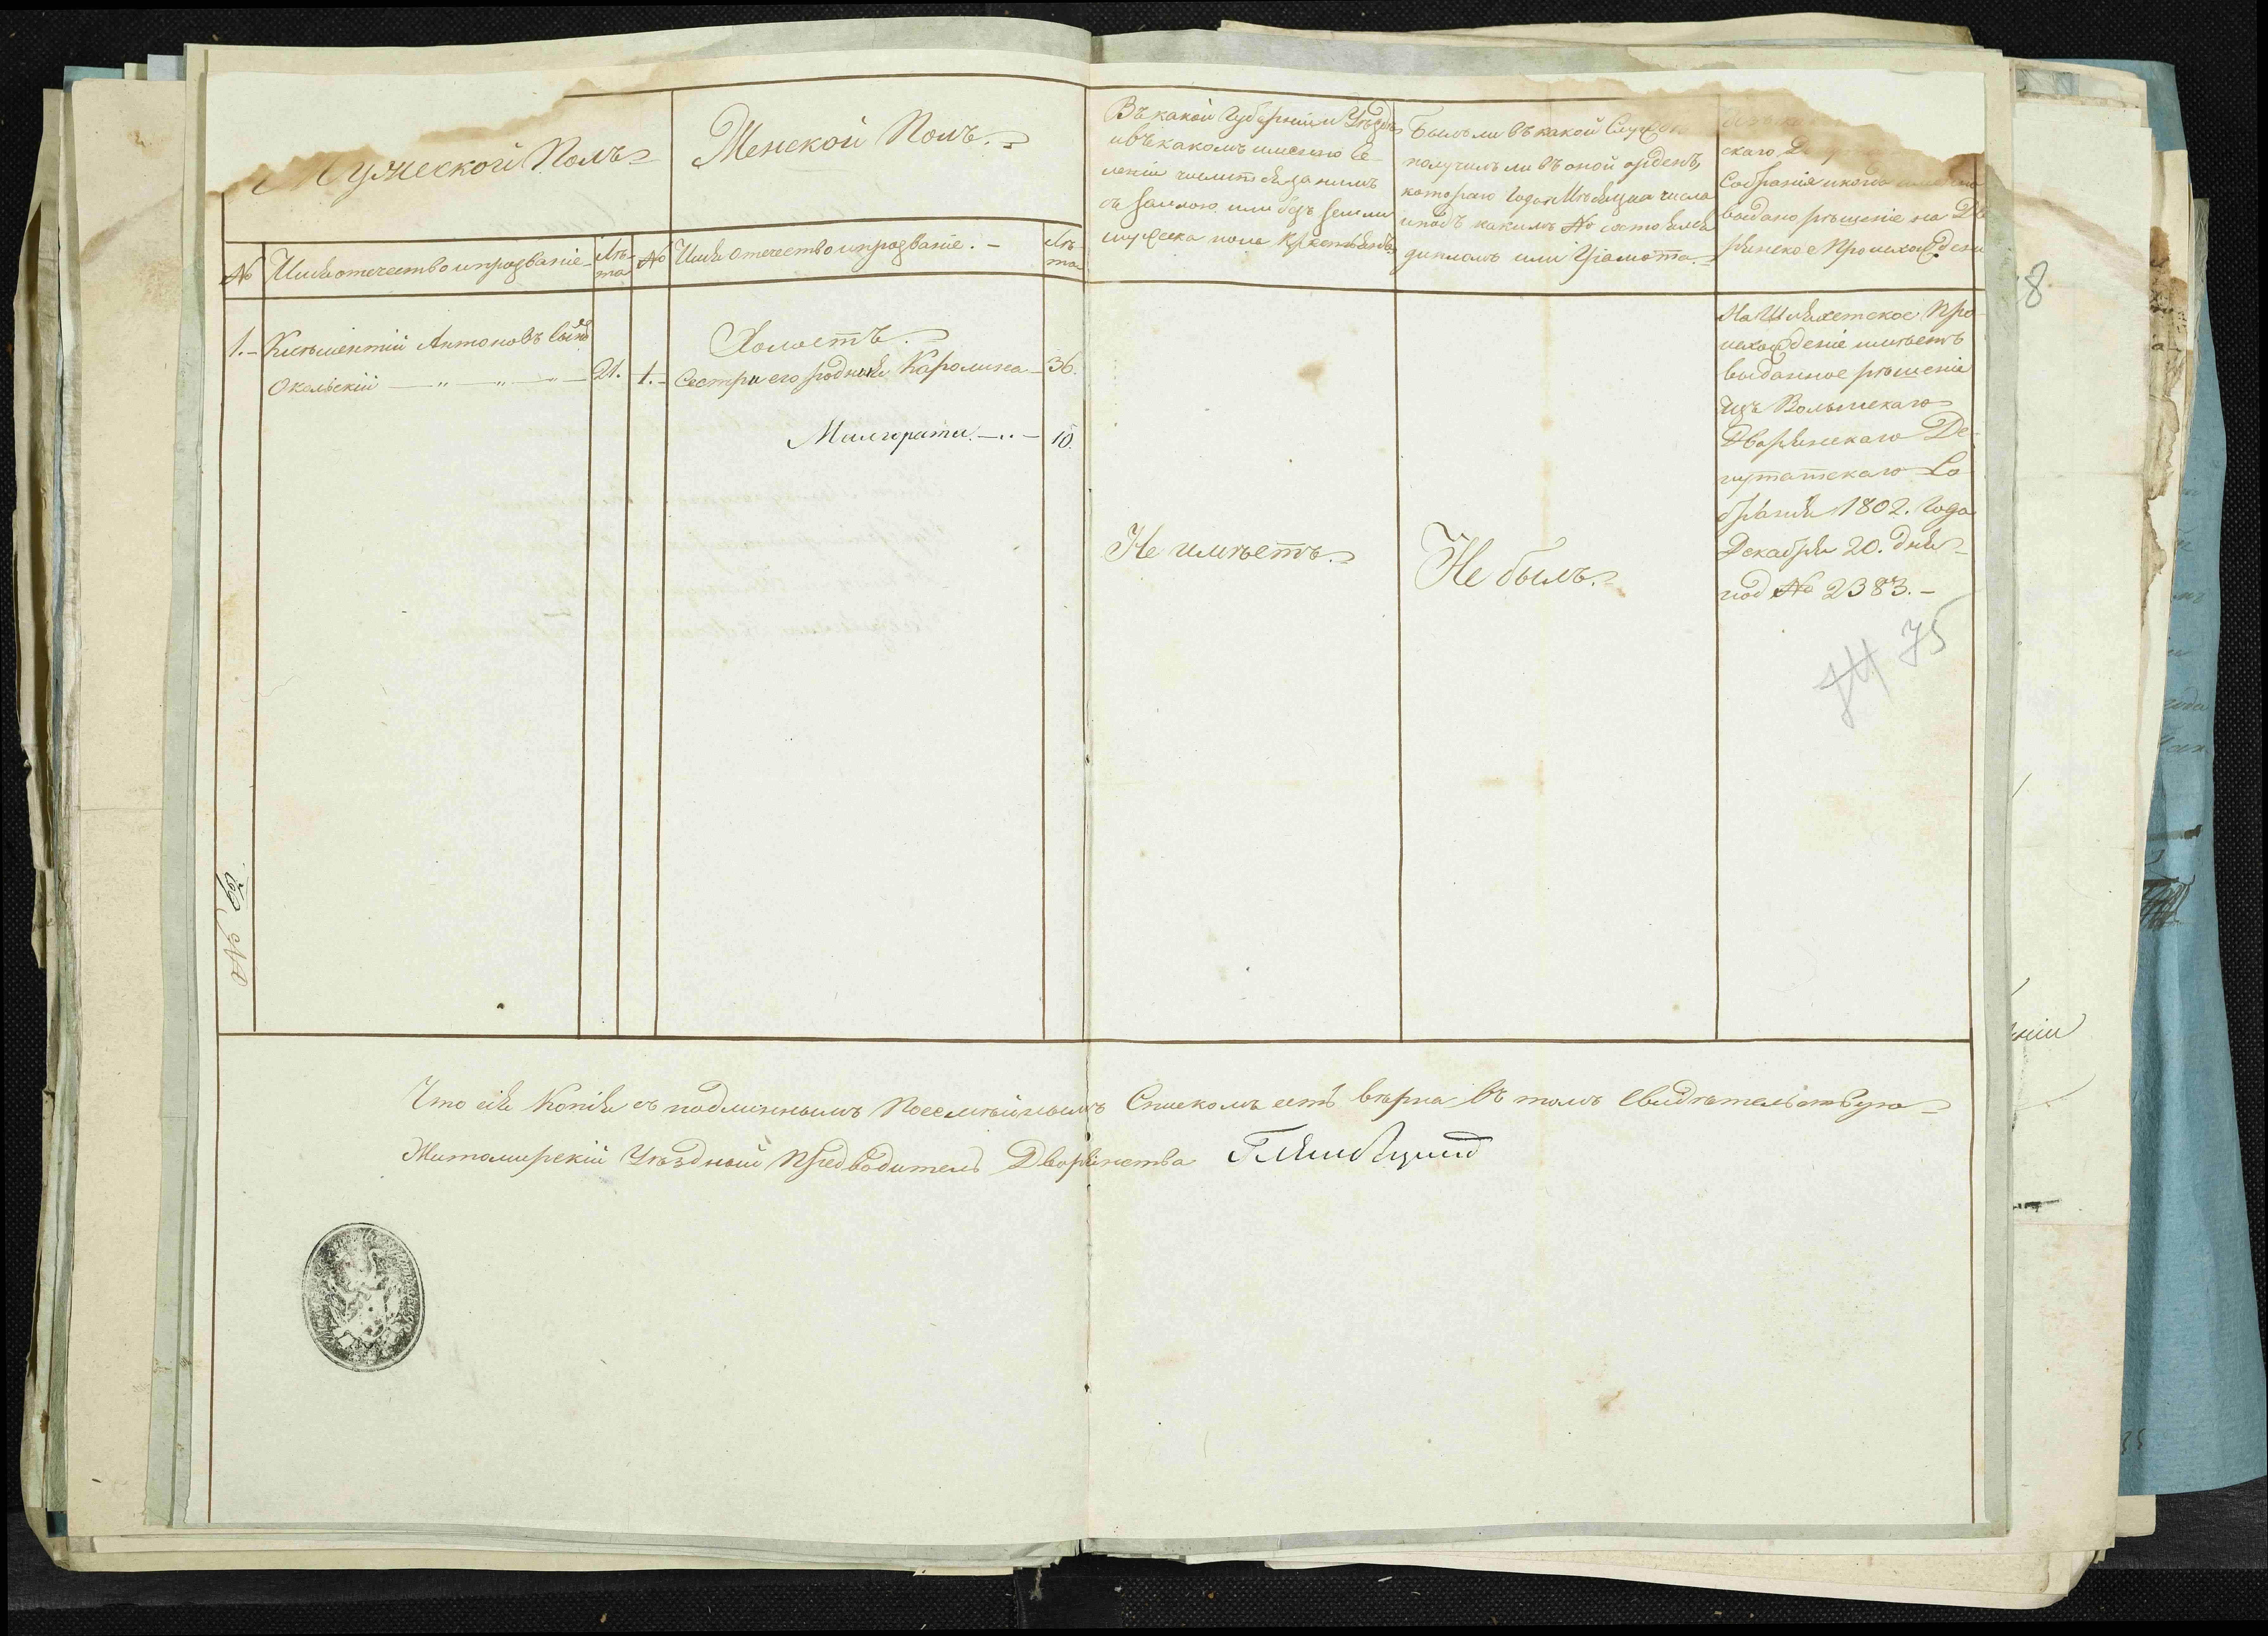 Мужеской Полъ
Женской Полъ.
Въ какой Губерніи и Уѣздѣ
и въ какомъ именно Се-
леніи числит ся за нимъ
съ землею или безъ земли
мужеска пола Крестьянъ
Былъ ли въ какой Службѣ
получилъ ли въ оной орденъ,
котораго года и Мѣсяца и числа
и подъ какимъ № состоялся
дипломъ или Грамота.
скаго
Собранія и когда
выдано рѣшеніе на Дво
рянское Происхожденіе
№ Имя отечество и прозваніе Лѣ-
та
№ Имя отечество и прозваніе. Лѣ-
та
1. Климентій Антоновъ сынъ
Окольскій — „ — „ — „ — 21.
Холостъ.
1. Сестры его родныя Каролина 36.
Маигорита. 10.
Не имѣетъ.
Не былъ.
На Шляхетское Про-
исхожденіе имѣетъ
выданное рѣшеніе
изъ Волынскаго
Дворянскаго Де-
путатскаго Со
бранія 1802. Года
Декабря 20. дня
под № 2383.
75
№ 62.
8
Что сія Копія съ подлиннымъ Посемѣйнымъ Спискомъ есть вѣрна въ томъ свидѣтельствую
Житомирскій Уѣздный Предводитель Дворянства